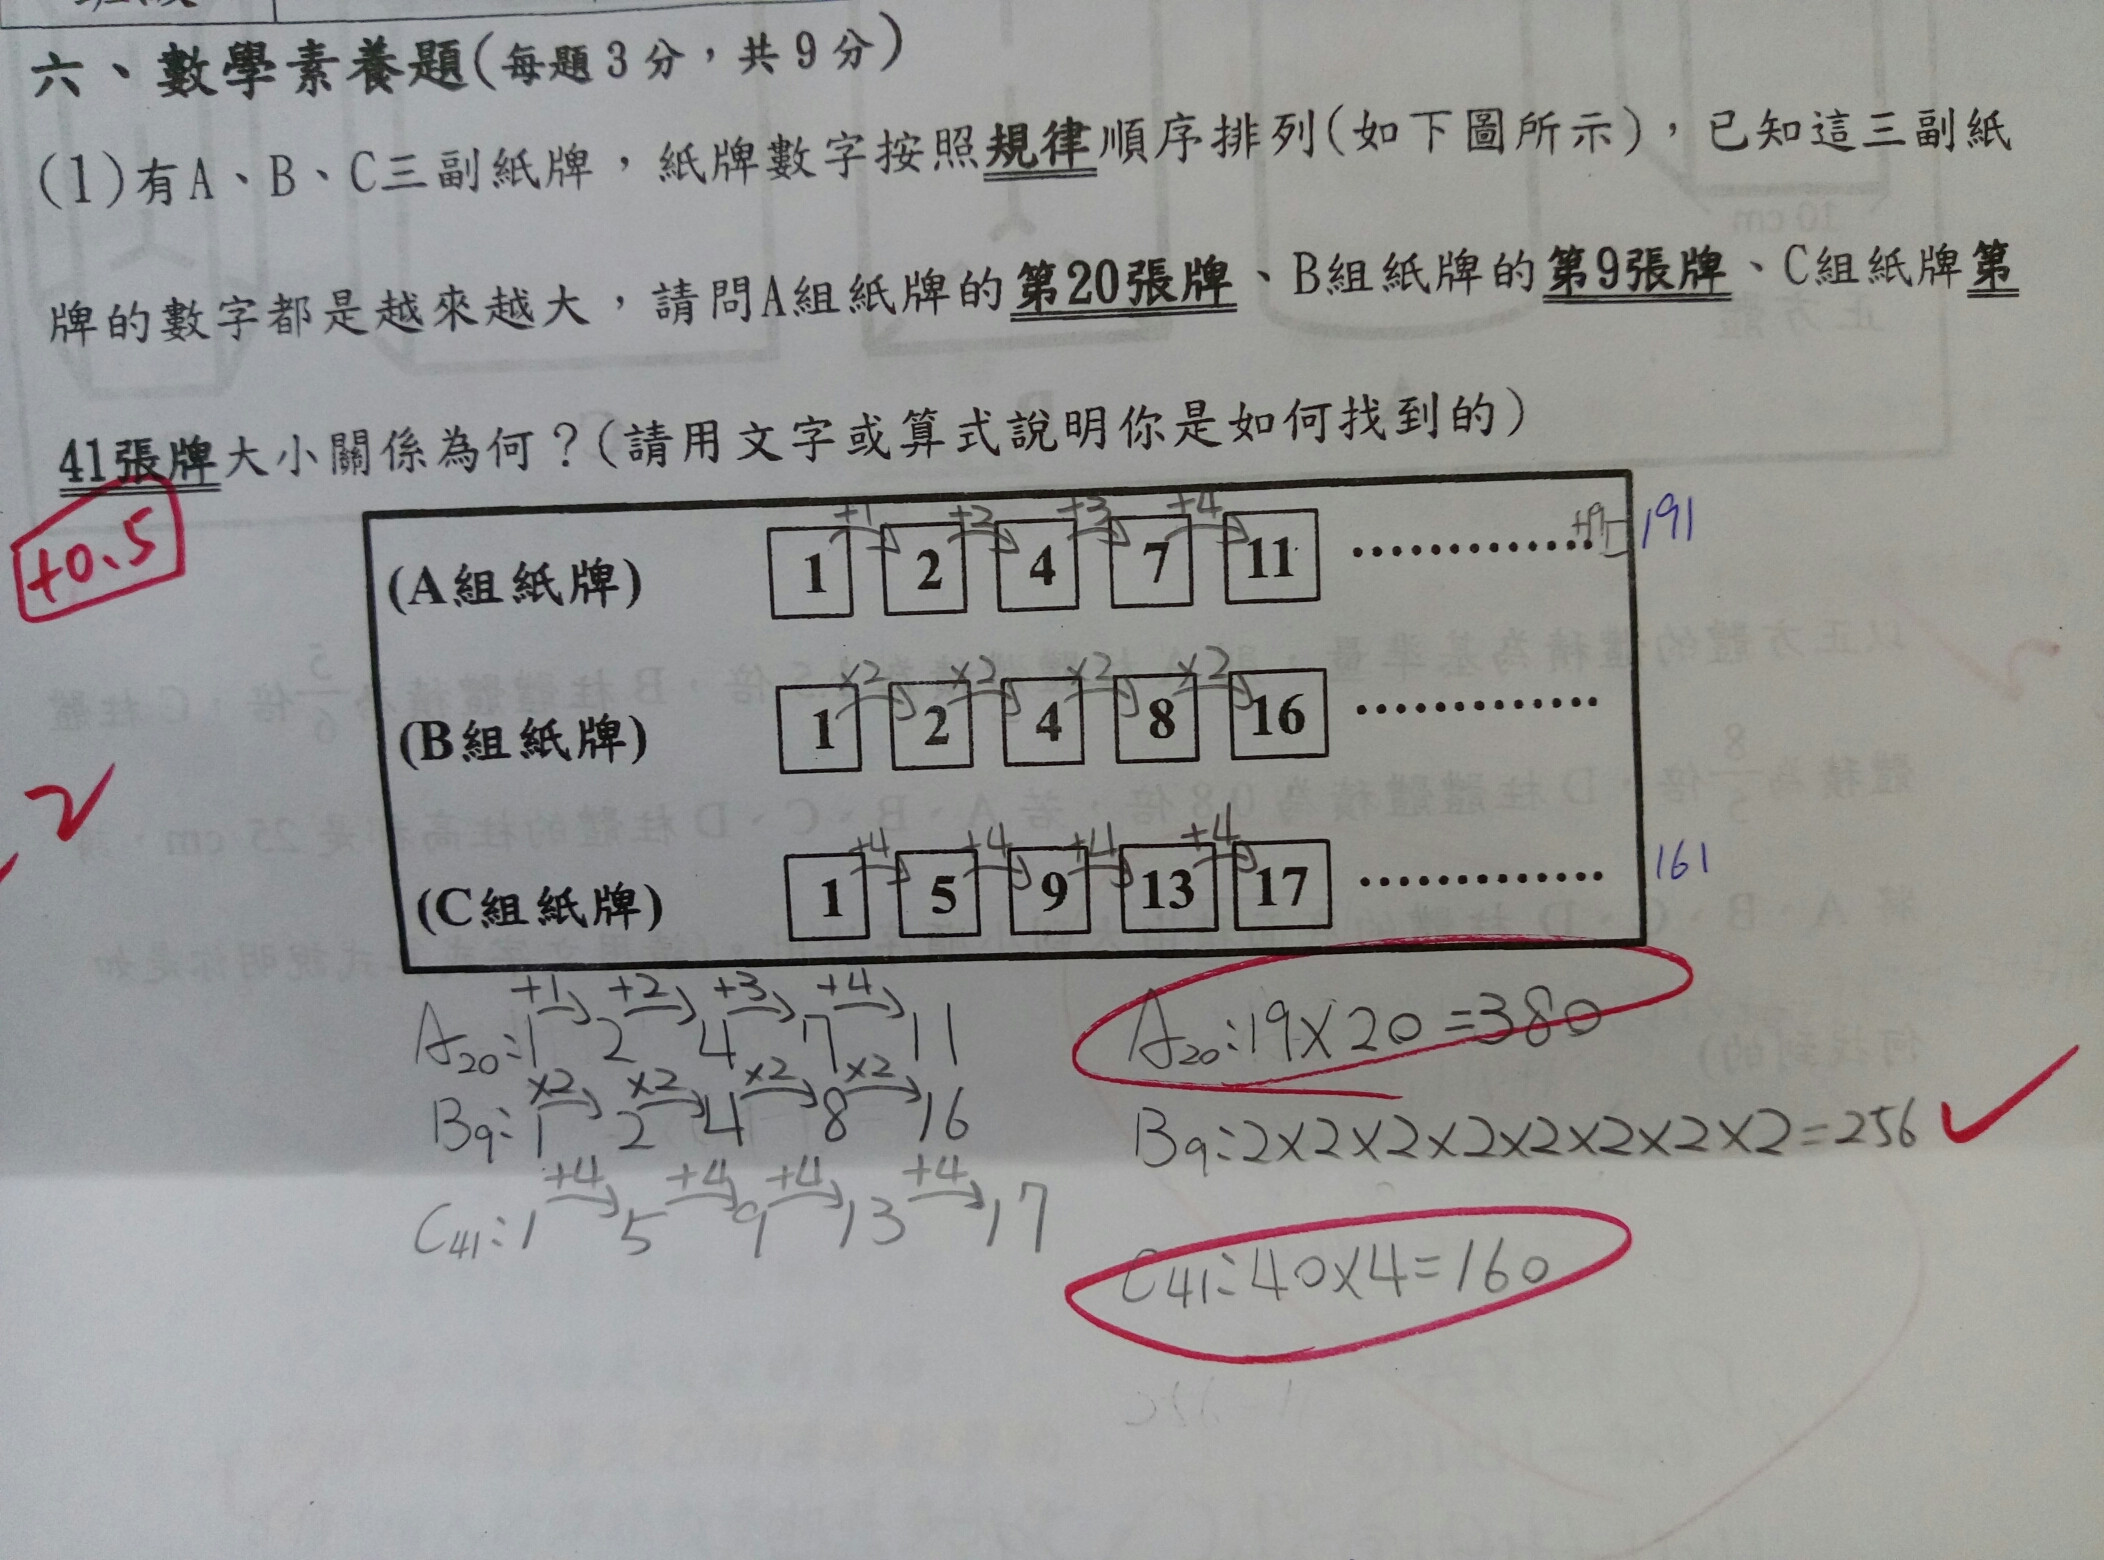 六、數學素養題(每題3分，共9分)
(1)有A、B、C三副紙牌，紙牌數字按照規律順序排列(如下圖所示)，已知這三副紙
牌的數字都是越來越大，請問A組紙牌的第20張牌、B組紙牌的第9張牌、C組紙牌第
41張牌大小關係為何？(請用文字或算式說明你是如何找到的)
+0.5
+1 +2 +3 +4
(A組紙牌) 1 2 4 7 11 ............. 191
×2 ×2 ×2 ×2
(B組紙牌) 1 2 4 8 16 .............
+4 +4 +4 +4
(C組紙牌) 1 5 9 13 17 ............. 161
+1 +2 +3 +4
A20:1 2 4 7 11
A20:19×20=380
×2 ×2 ×2 ×2
B9:1 2 4 8 16
B9:2×2×2×2×2×2×2×2=256
+4 +4 +4 +4
C41:1 5 9 13 17
C41:40×4=160